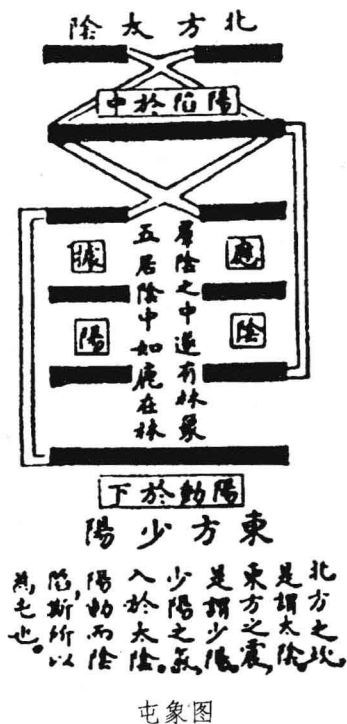 北方太陰
陽陷於中
應
據
羣陰之中遂有林象
五居陰中如鹿在林
陰
陽
陽動於下
東方少陽
北方之坎,
是謂太陰。
東方之震,
是謂少陽。
少陽之氣,
入於太陰。
陽動而陰
陷,斯所以
為屯也。
屯象图